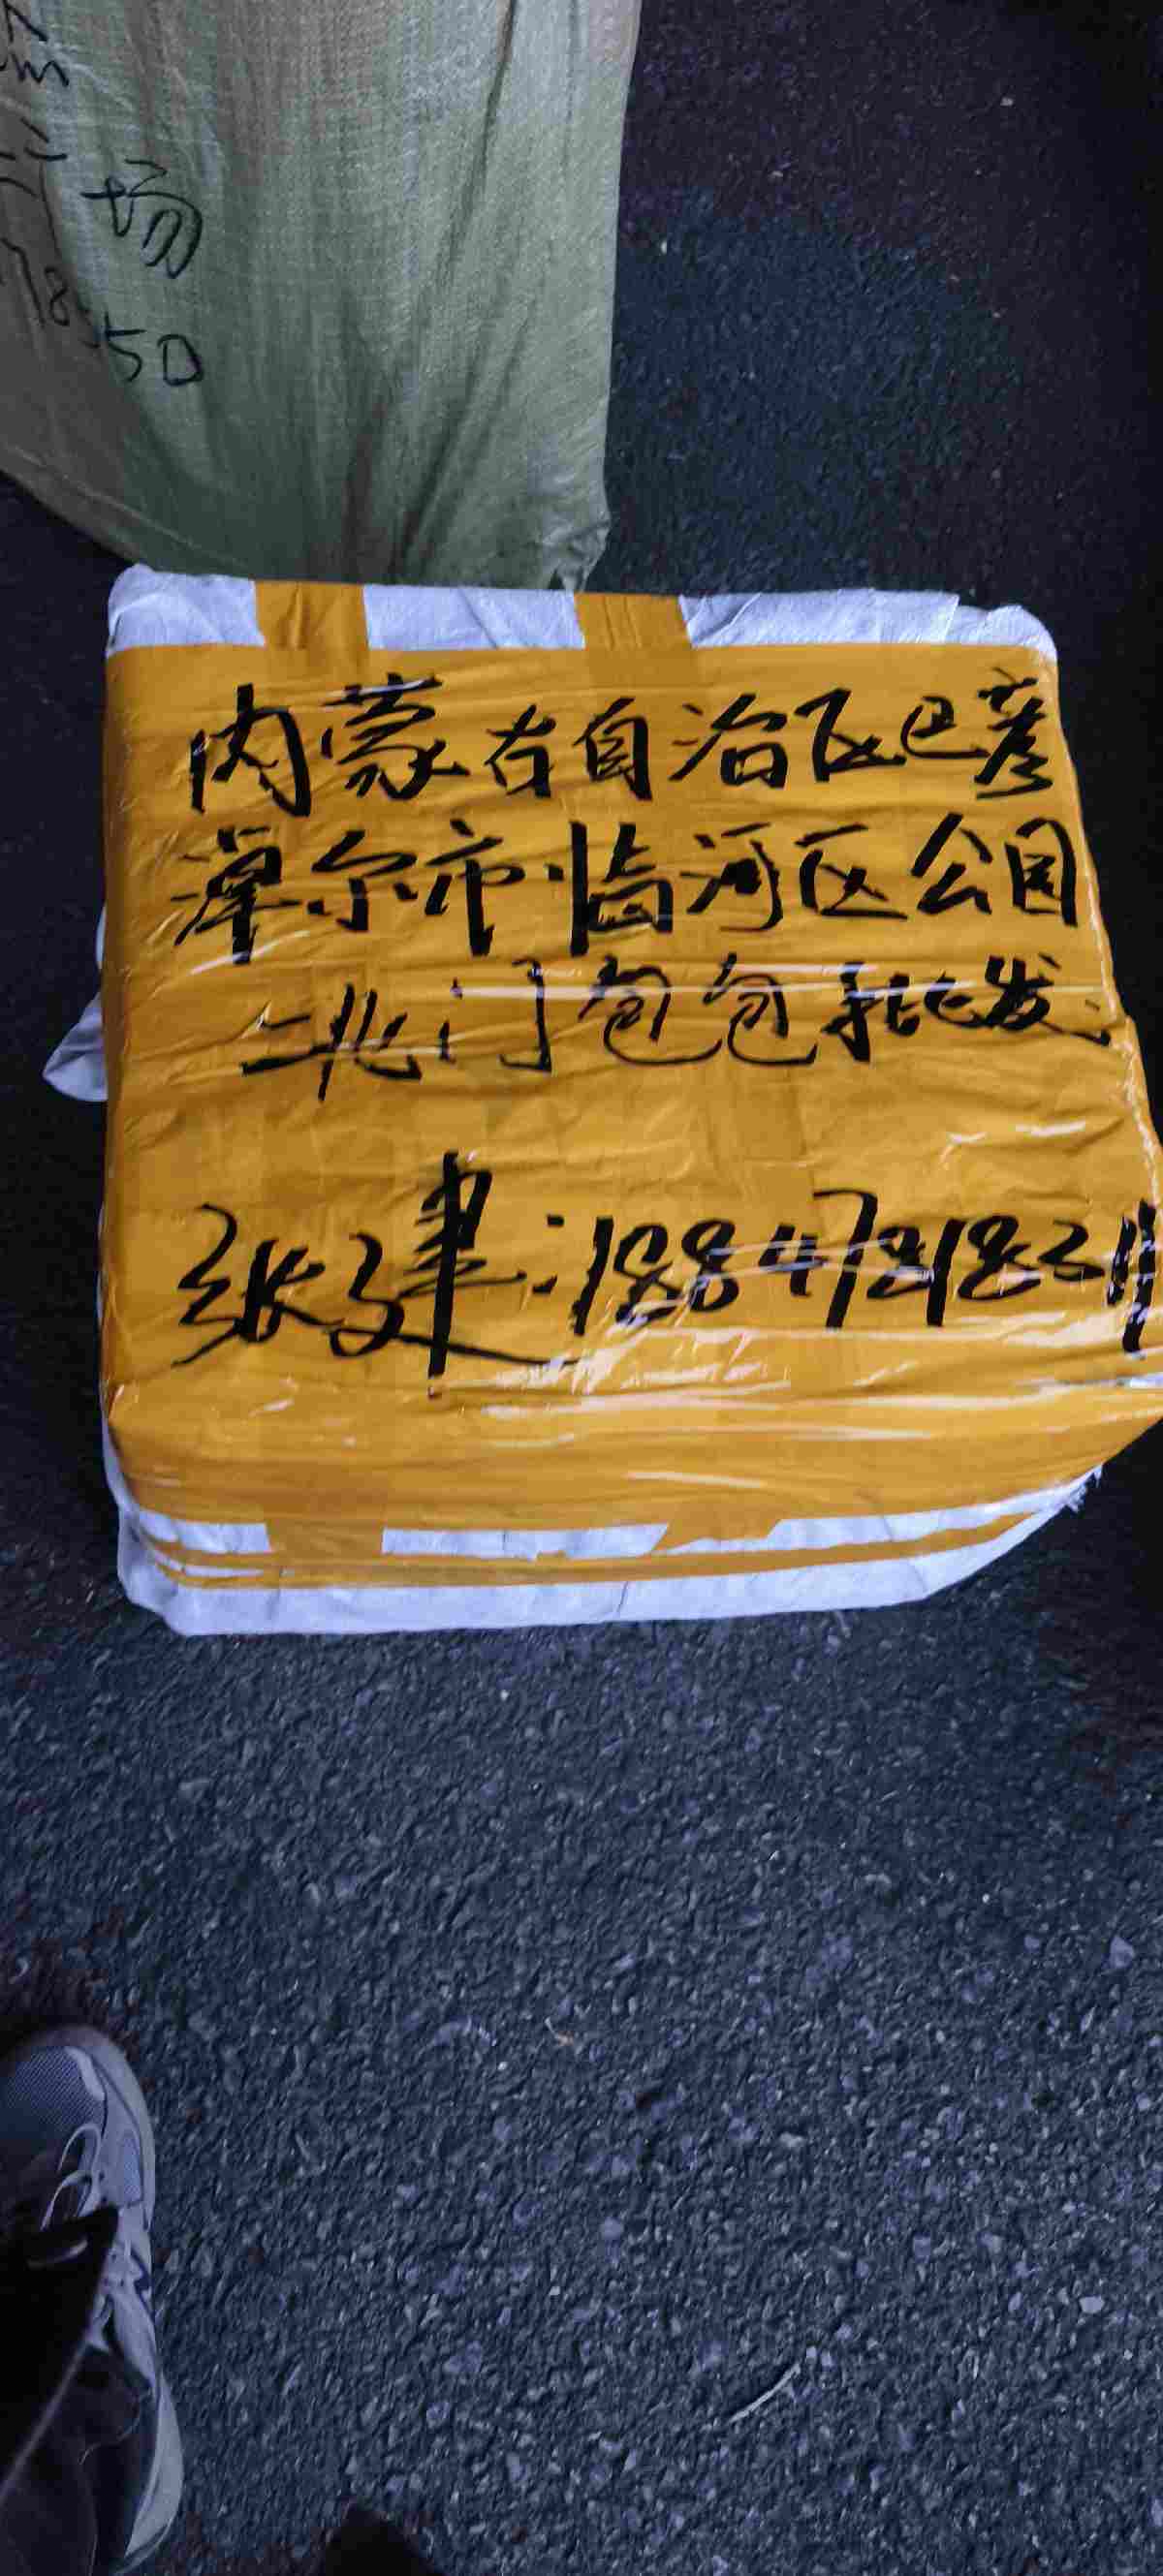 场
50
内蒙古自治区巴彦
淖尔市临河区公园
北门包包批发
张建:18847818211